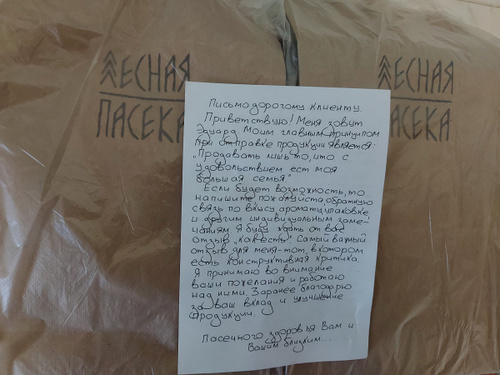 ЛЕСНАЯ
ПАСЕКА
ЛЕСНАЯ
ПАСЕКА
Письмо дорогому клиенту.
Приветствую! Меня зовут
Эдуард. Моим главным принципом
при отправке продукции является:
"Продавать лишь то, что с
удовольствием ест моя
большая семья"
Если будет возможность, то
напишите пожалуйста, обратную
связь по вкусу, аромату, упаковке
и другим индивидуальным заме-
чаниям. Я буду ждать от вас
отзыв "как есть". Самый важный
отзыв для меня - тот, в котором
есть конструктивная критика.
Я принимаю во внимание
ваши пожелания и работаю
над ними. Заранее благодарю
за ваш вклад и улучшение
продукции.
Пасечного здоровья Вам и
Вашим близким...